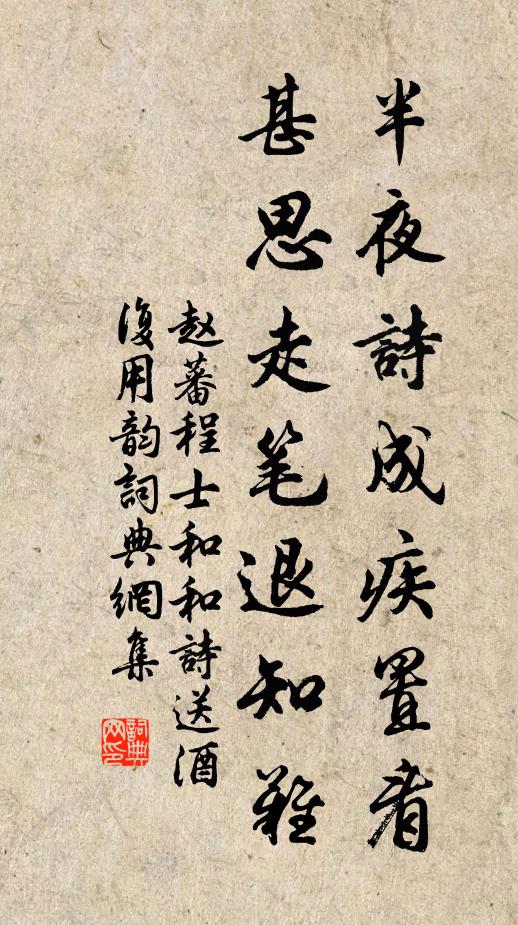 半夜詩成疾置看
甚思走笔退知難
赵蕃程士和和詩送酒
復用韵詞典網集
詞典网印